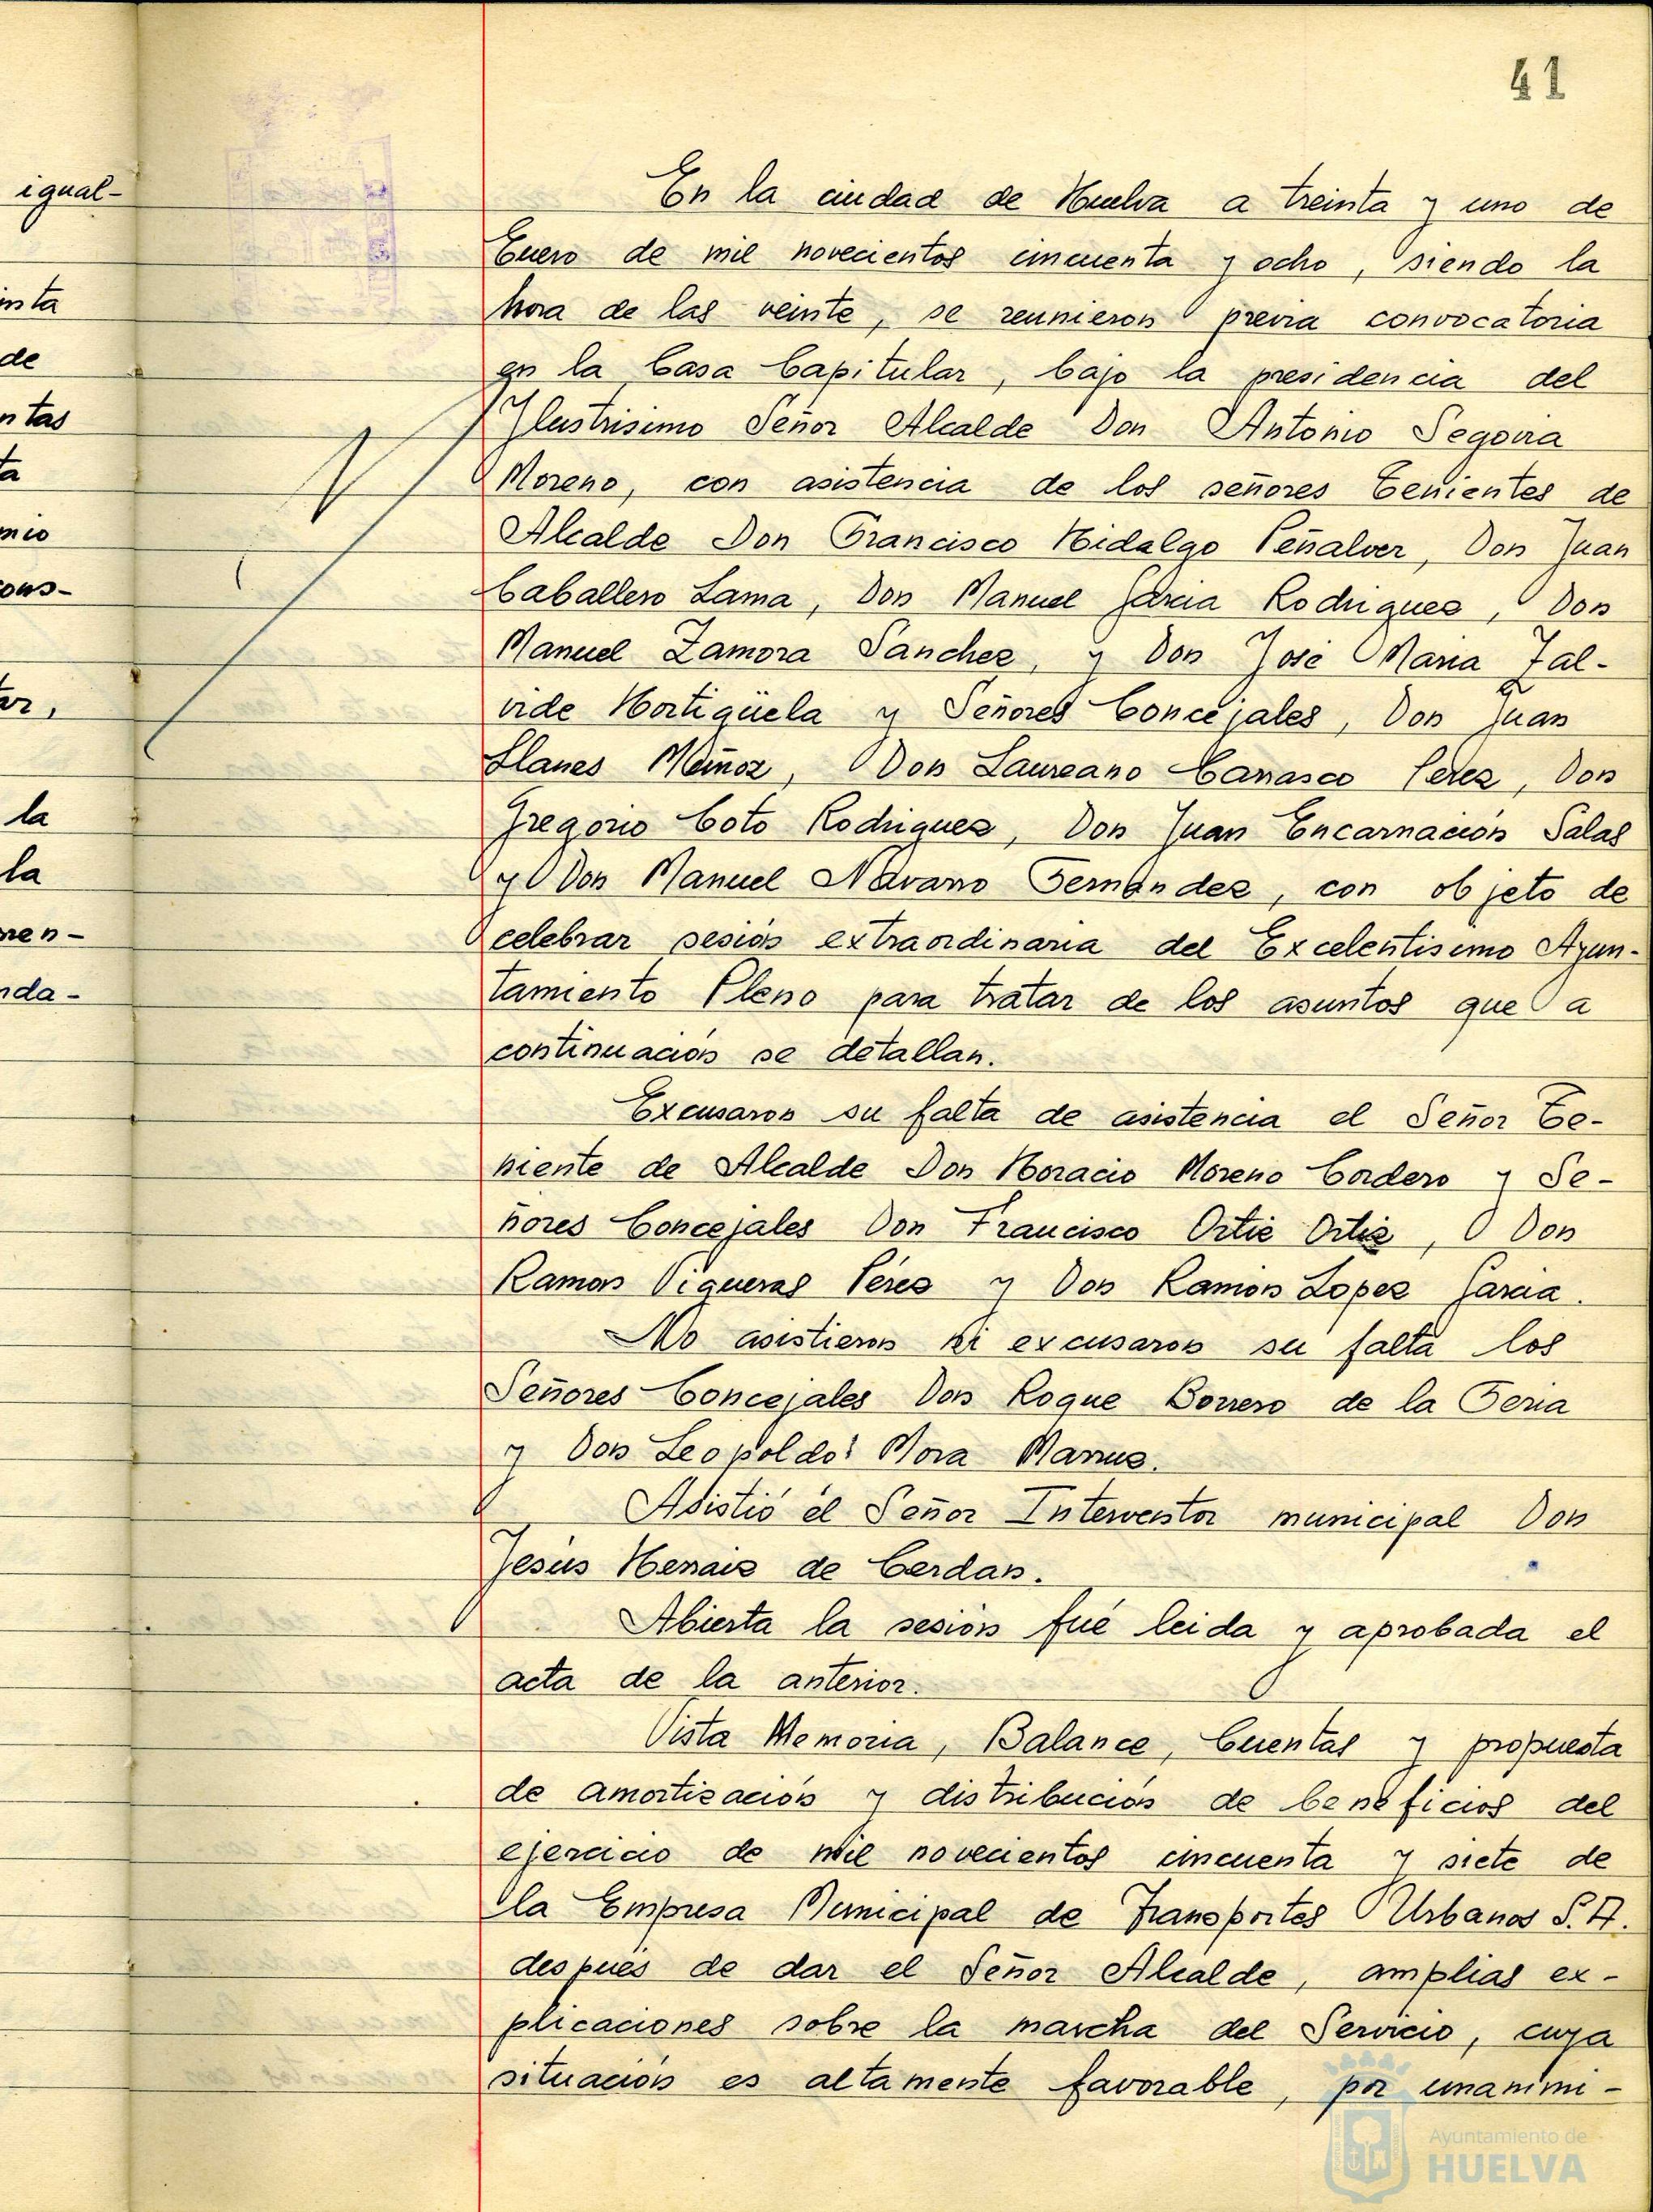 41
igual-
de
la
la
En la ciudad de Huelva a treinta y uno de
Enero de mil novecientos cincuenta y ocho, siendo la
hora de las veinte, se reunieron previa convocatoria
en la Casa Capitular, bajo la presidencia del
Ilustrisimo Señor Alcalde Don Antonio Segovia
Moreno, con asistencia de los señores Tenientes de
Alcalde Don Francisco Hidalgo Peñalver, Don Juan
Caballero Lama, Don Manuel Garcia Rodriguez, Don
Manuel Zamora Sanchez, y Don José Maria Zal-
vide Hortigüela y Señores Concejales, Don Juan
Llanes Muñoz, Don Laureano Carrasco Perez, Don
Gregorio Coto Rodriguez, Don Juan Encarnación Salas
y Don Manuel Navarro Fernandez, con objeto de
celebrar sesión extraordinaria del Excelentisimo Ayun-
tamiento Pleno para tratar de los asuntos que a
continuación se detallan.
Excusaron su falta de asistencia el Señor Te-
niente de Alcalde Don Horacio Moreno Cordero y Se-
ñores Concejales Don Francisco Ortiz Ortiz, Don
Ramon Vigueras Pérez y Don Ramón Lopez Garcia.
No asistieron ni excusaron su falta los
Señores Concejales Don Roque Borrero de la Feria
y Don Leopoldo Mora
Asistió el Señor Interventor municipal Don
Jesús de Cerdan.
Abierta la sesión fué leida y aprobada el
acta de la anterior.
Vista Memoria, Balance, Cuentas y propuesta
de amortización y distribución de beneficios del
ejercicio de mil novecientos cincuenta y siete de
la Empresa Municipal de Transportes Urbanos S.A.
después de dar el Señor Alcalde, amplias ex-
plicaciones sobre la marcha del Servicio, cuya
situación es altamente favorable, por unanimi-
Ayuntamiento de
HUELVA